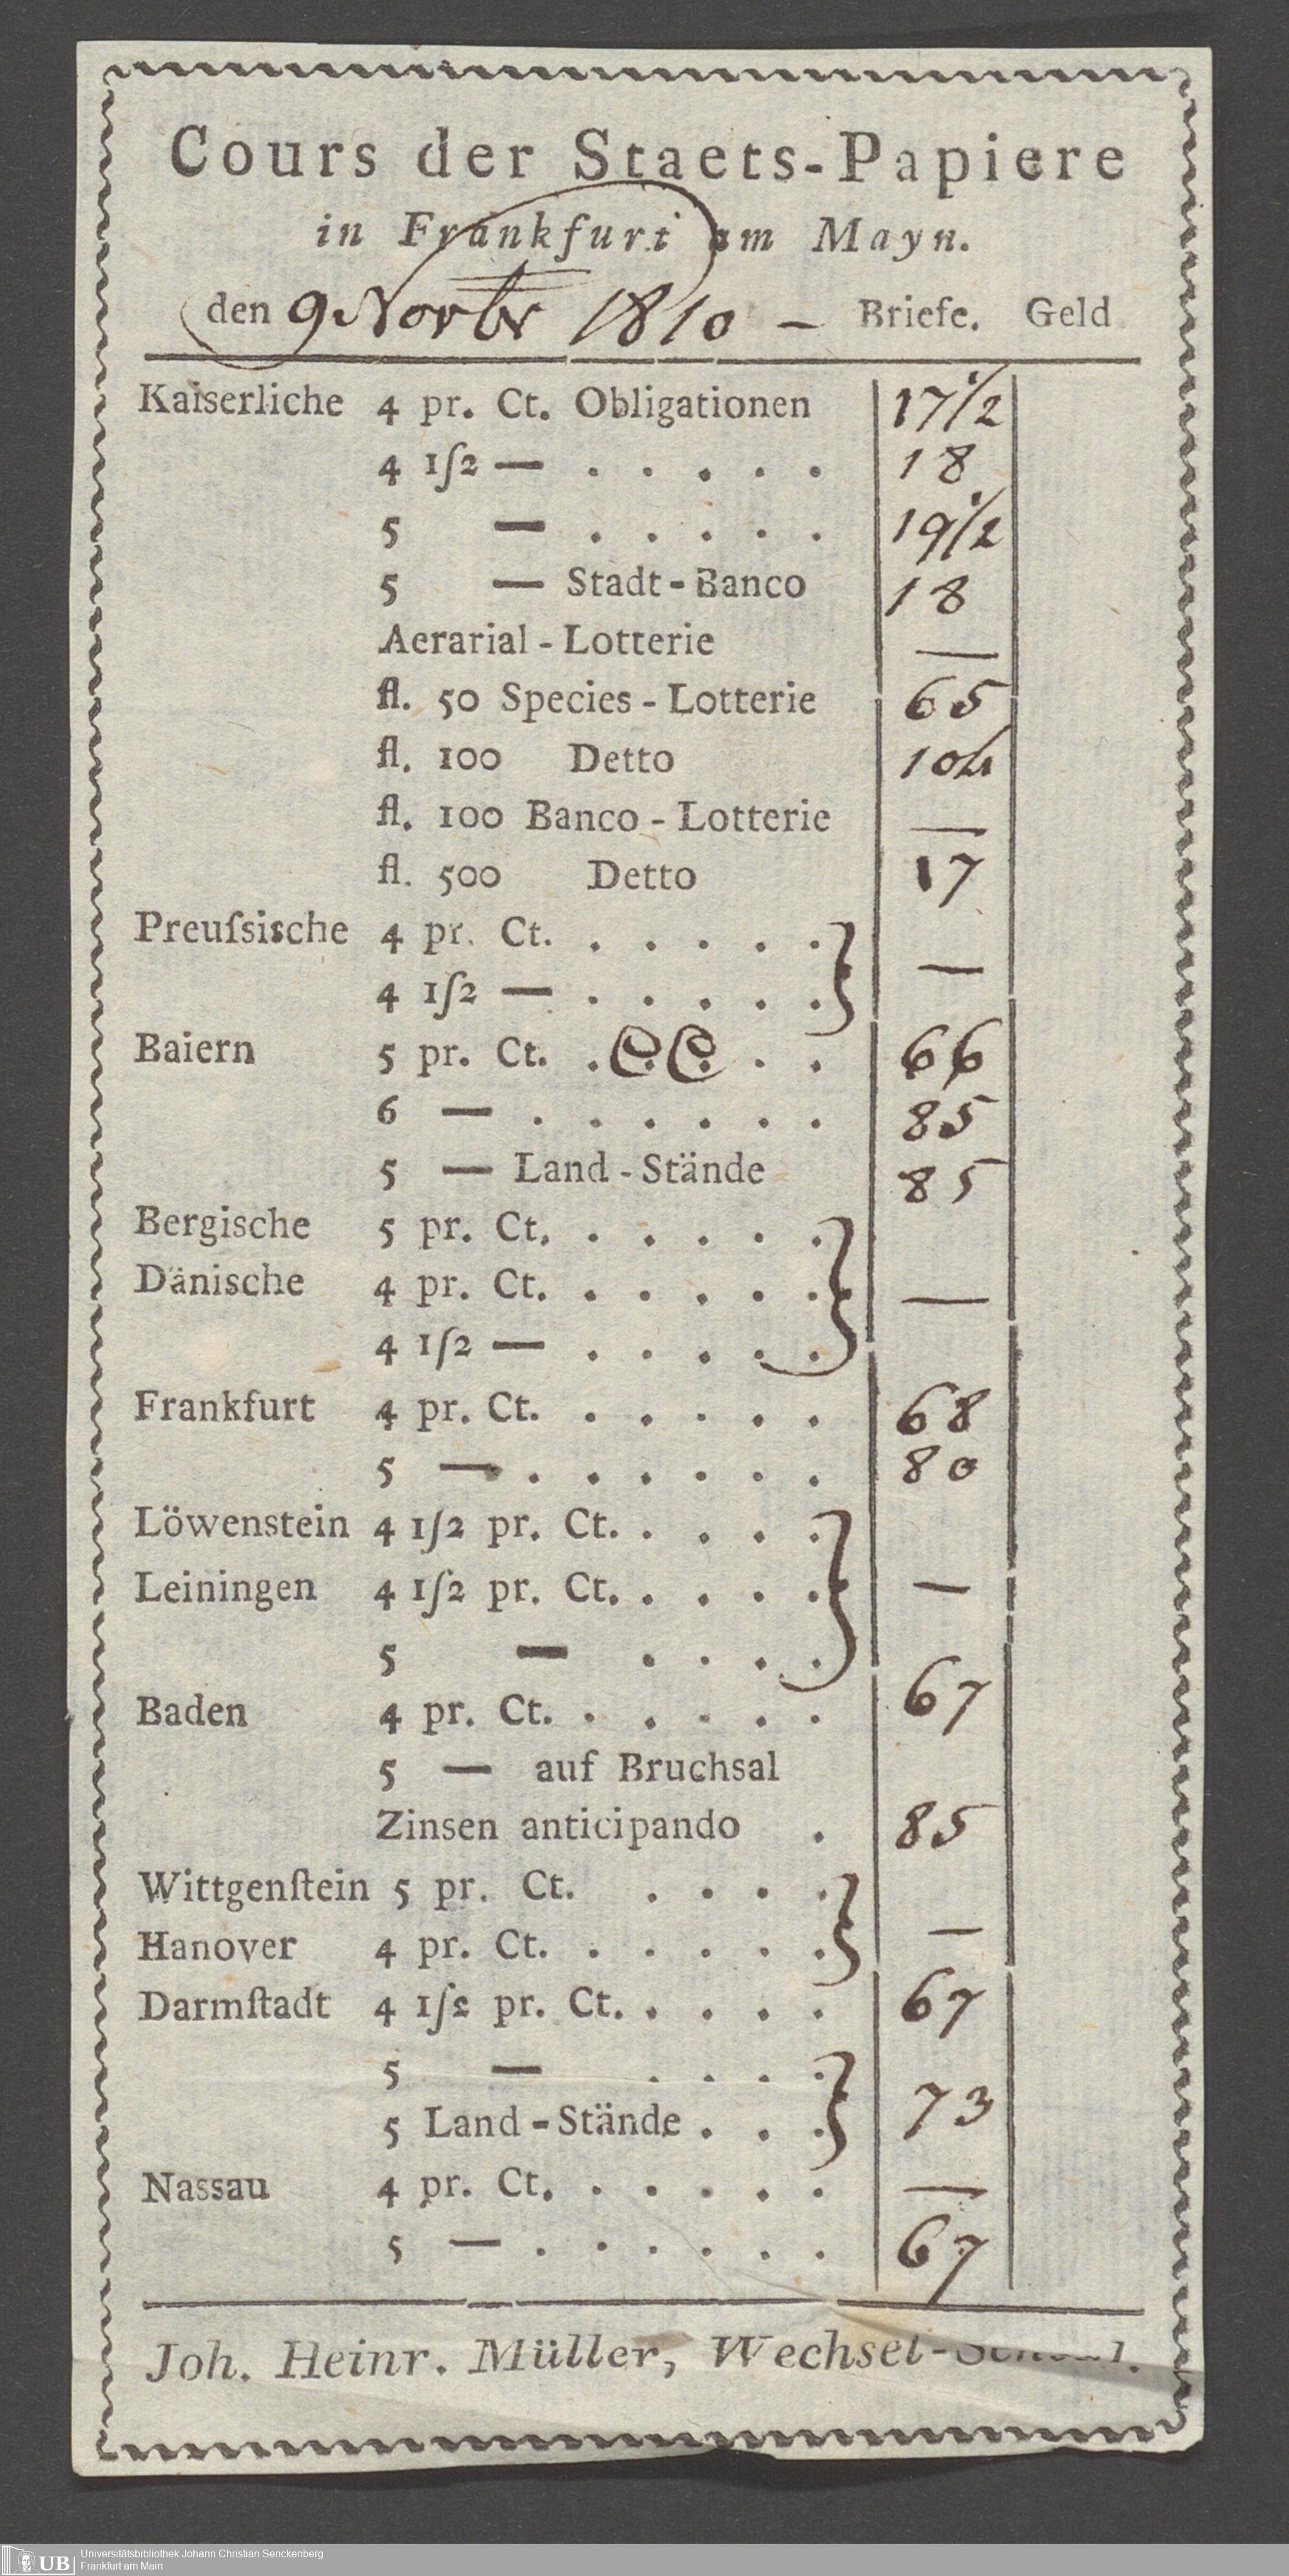 Cours der Staets-Papiere
in Frankfurt am Mayn.
den 9 Novbr 1810 — Briefe. Geld
Kaiserliche 4 pr. Ct. Obligationen 17 1/2
4 1ſ2 — . . . . . 18
5 — . . . . . 19 1/2
5 — Stadt-Banco 18
Aerarial-Lotterie —
fl. 50 Species-Lotterie 65
fl. 100 Detto 104
fl. 100 Banco-Lotterie —
fl. 500 Detto 17
Preuſsische 4 pr. Ct. . . . . .
4 1ſ2 — . . . . . —
Baiern 5 pr. Ct. . . . . . 66
6 — . . . . . . 85
5 — Land-Stände 85
Bergische 5 pr. Ct. . . . . .
Dänische 4 pr. Ct. . . . . . —
4 1ſ2 — . . . . .
Frankfurt 4 pr. Ct. . . . . . 68
5 — . . . . . . 80
Löwenstein 4 1ſ2 pr. Ct. . . . .
Leiningen 4 1ſ2 pr. Ct. . . . . —
5 — . . . .
Baden 4 pr. Ct. . . . . . 67
5 — auf Bruchsal
Zinsen anticipando . 85
Wittgenſtein 5 pr. Ct. . . . .
Hanover 4 pr. Ct. . . . . . —
Darmſtadt 4 1ſ2 pr. Ct. . . . . 67
5 — . . . .
5 Land-Stände . . . 73
Nassau 4 pr. Ct. . . . . . —
5 — . . . . . . 67
Joh. Heinr. Müller, Wechsel-
UB Universitätsbibliothek Johann Christian Senckenberg
Frankfurt am Main